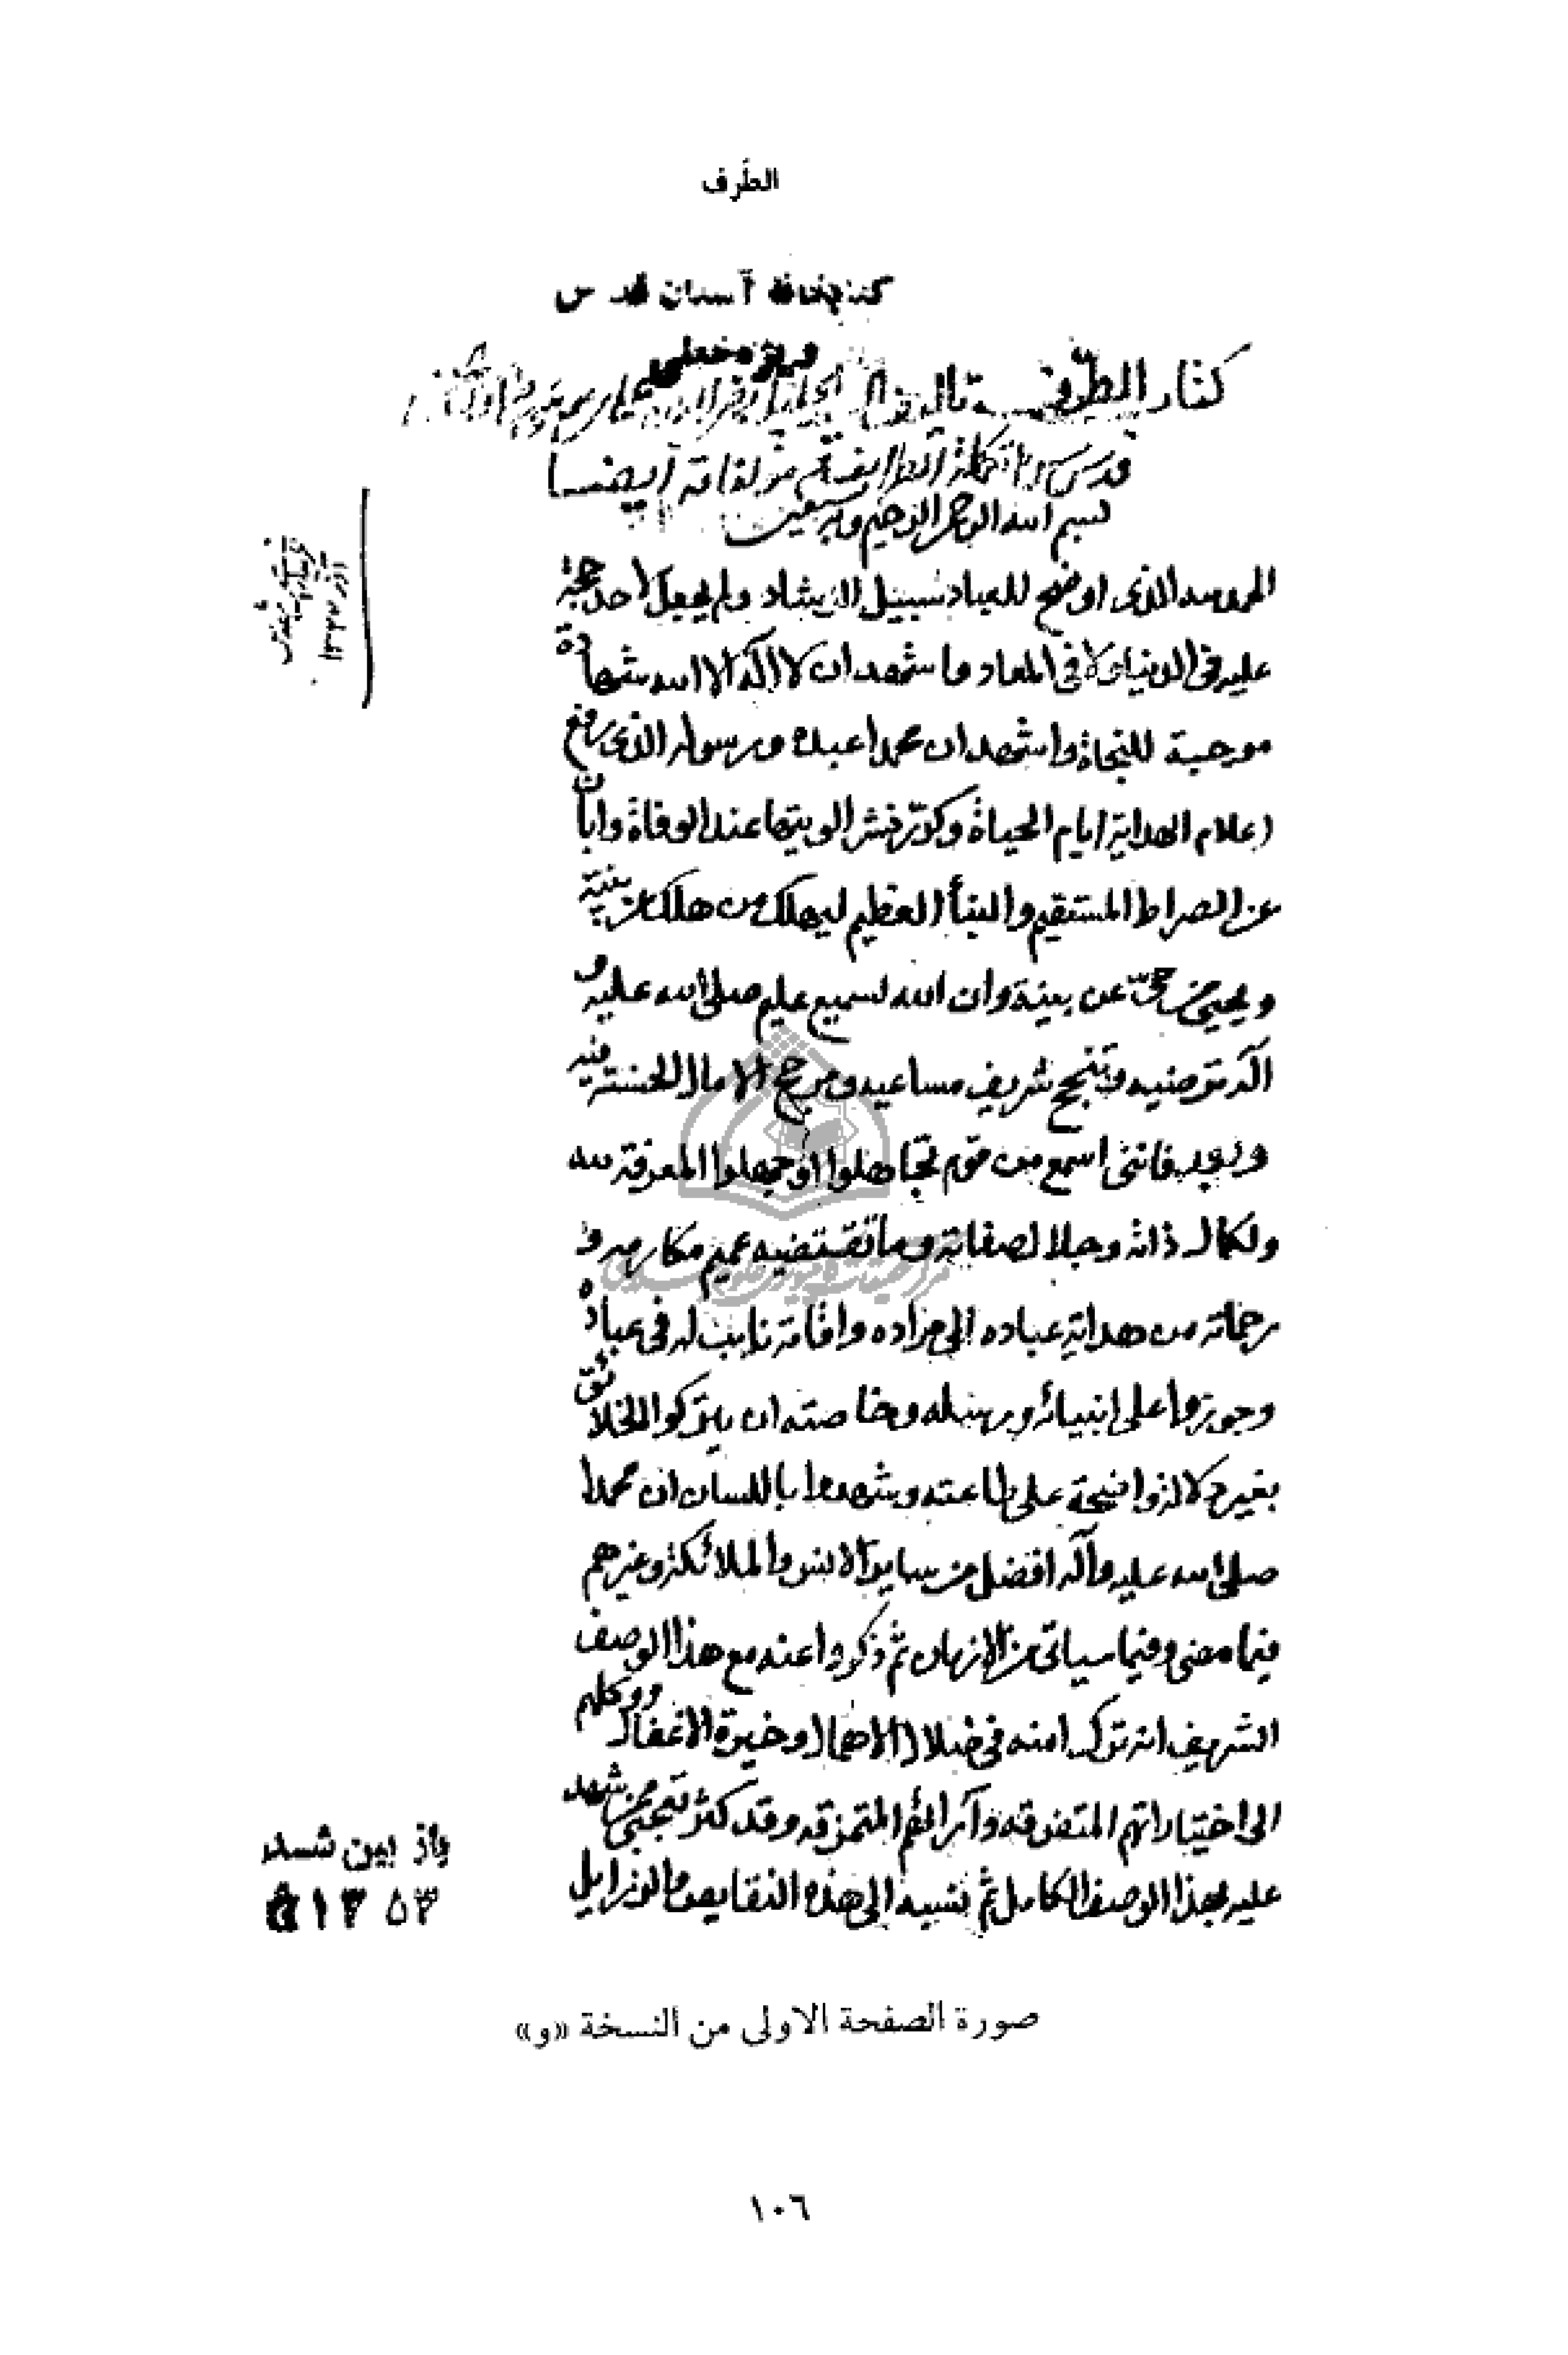 الطُرف
كتابخانهٔ آستان قدس
كتاب الطرف تأليف
قدس تكملة الطرايف مؤلفاته ايضا
بسم الله الرحمن الرحيم وبه نستعين
الحمد لله الذى اوضح للعباد سبيل الرشاد ولم يجعل لاحد حجة
عليه فى الدنيا ولا فى المعاد واشهد ان لا اله الا الله شهادة
موجبة للنجاة واشهد ان محمدا عبده ورسوله الذى رفع
اعلام الهداية ايام الحياة وكرّر نشر الويتها عند الوفاة وابان
عن الصراط المستقيم والنبأ العظيم ليهلك من هلك عن بينة
ويحيى من حىّ عن بينة وان الله لسميع عليم صلى الله عليه و
آله توضيه وتنجح شريف مساعيه و الامال الحسنة فيه
وبعد فاننى اسمع من قوم تجاهلوا او جهلوا المعرفة لله
ولكمال ذاته وجلال صفاته وما تقتضيه عميم مكارمه و
رحماته من هداية عباده الى مراده واقامة نايب له فى عباده
وجوزوا على انبيائه ورسله وخاصته ان يتركوا الخلائق
بغير دلالة واضحة على طاعته وشهدوا باللسان ان محمدا
صلى الله عليه وآله افضل من ساير الانس والملائكة وغيرهم
فيما مضى وفيما سياتى من الازمان ثم ذكروا عنه مع هذا الوصف
الشريف انه ترك امته فى ضلال الاهمال وحيرة الاغفال ووكلهم
الى اختياراتهم المتفرقة وآرائهم المتمزقه وقد كثر تعجبى ممن شهد
عليه بهذا الوصف الكامل ثم نسبه الى هذه النقايص والرزايل
باز بين شد
۱۳۵۳
صورة الصفحة الاولى من النسخة «و»
١٠٦